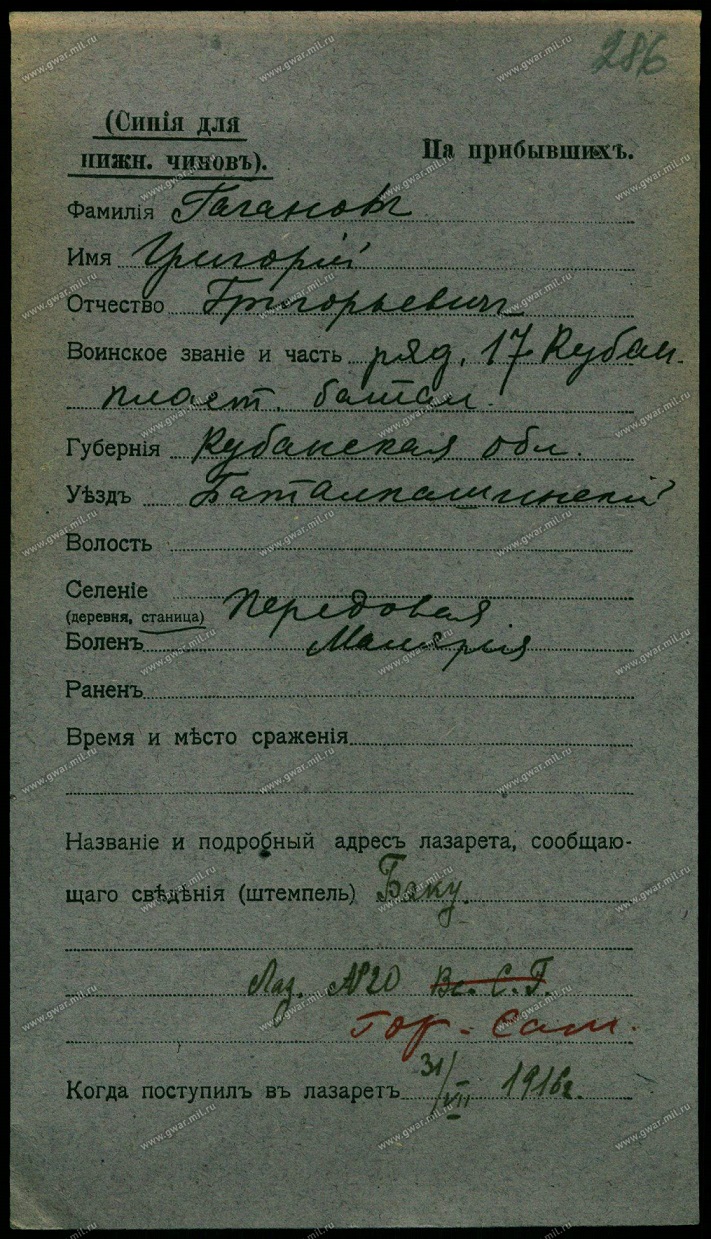 286
(Синія для
нижн. чиновъ).
На прибывшихъ.
Фамилія Гагановъ
Имя Григорій
Отчество Григорьевич
Воинское званіе и часть ряд. 17 Кубан.
пласт. батал.
Губернія Кубанская обл.
Уѣздъ Баталпашинскій
Волость
Селеніе
(деревня, станица) Передовая
Боленъ Малярия
Раненъ
Время и мѣсто сраженія
Названіе и подробный адресъ лазарета, сообщаю-
щаго свѣдѣнія (штемпель) Баку.
Лаз. №20 Вс. С. Г.
Гор. Сам.
Когда поступилъ въ лазаретъ 31/VII 1916г.
www.gwar.mil.ru